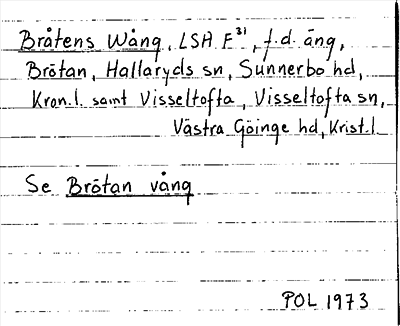 Bråtens Wång, LSA F³¹, f.d. äng,
Brötan, Hallaryds sn, Sunnerbo hd,
Kron.l. samt Visseltofta, Visseltofta sn,
Västra Göinge hd, Krist.l.
Se Brötan vång
POL 1973